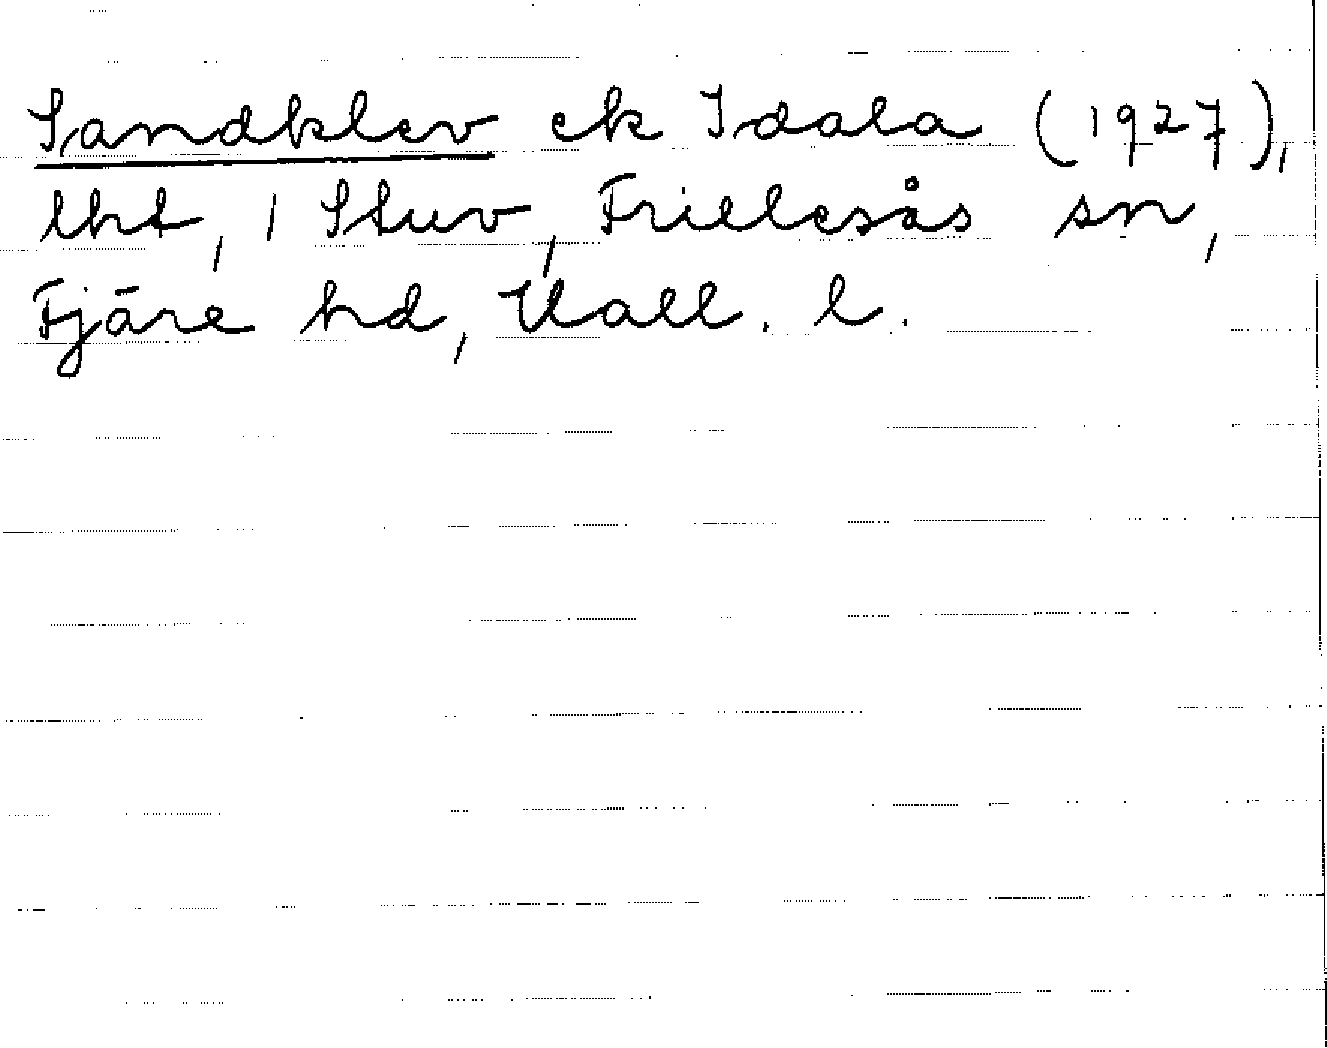 Sandklev ek Idala (1927),
lht, 1 Stuv, Frillesås sn,
Fjäre hd, Hall. l.